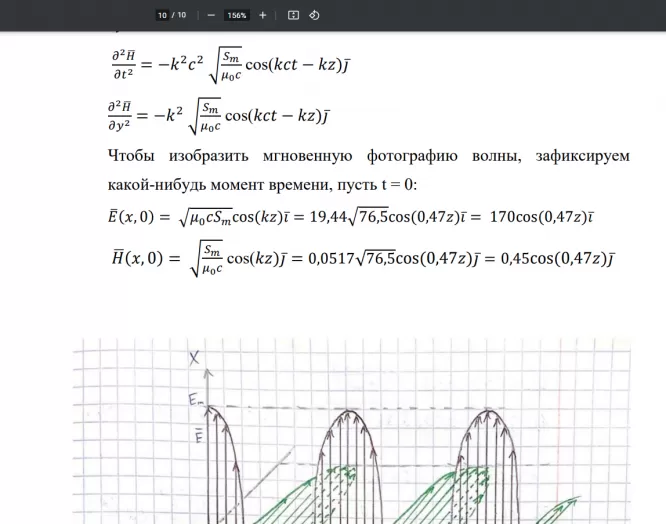 10 / 10 156%
∂²H̅/∂t² = −k²c² √(Sₘ/μ₀c) cos(kct − kz)j̅
∂²H̅/∂y² = −k² √(Sₘ/μ₀c) cos(kct − kz)j̅
Чтобы изобразить мгновенную фотографию волны, зафиксируем
какой-нибудь момент времени, пусть t = 0:
E̅(x, 0) = √(μ₀cSₘ)cos(kz)i̅ = 19,44√76,5cos(0,47z)i̅ = 170cos(0,47z)i̅
H̅(x, 0) = √(Sₘ/μ₀c) cos(kz)j̅ = 0,0517√76,5cos(0,47z)j̅ = 0,45cos(0,47z)j̅
X
Eₘ
E̅